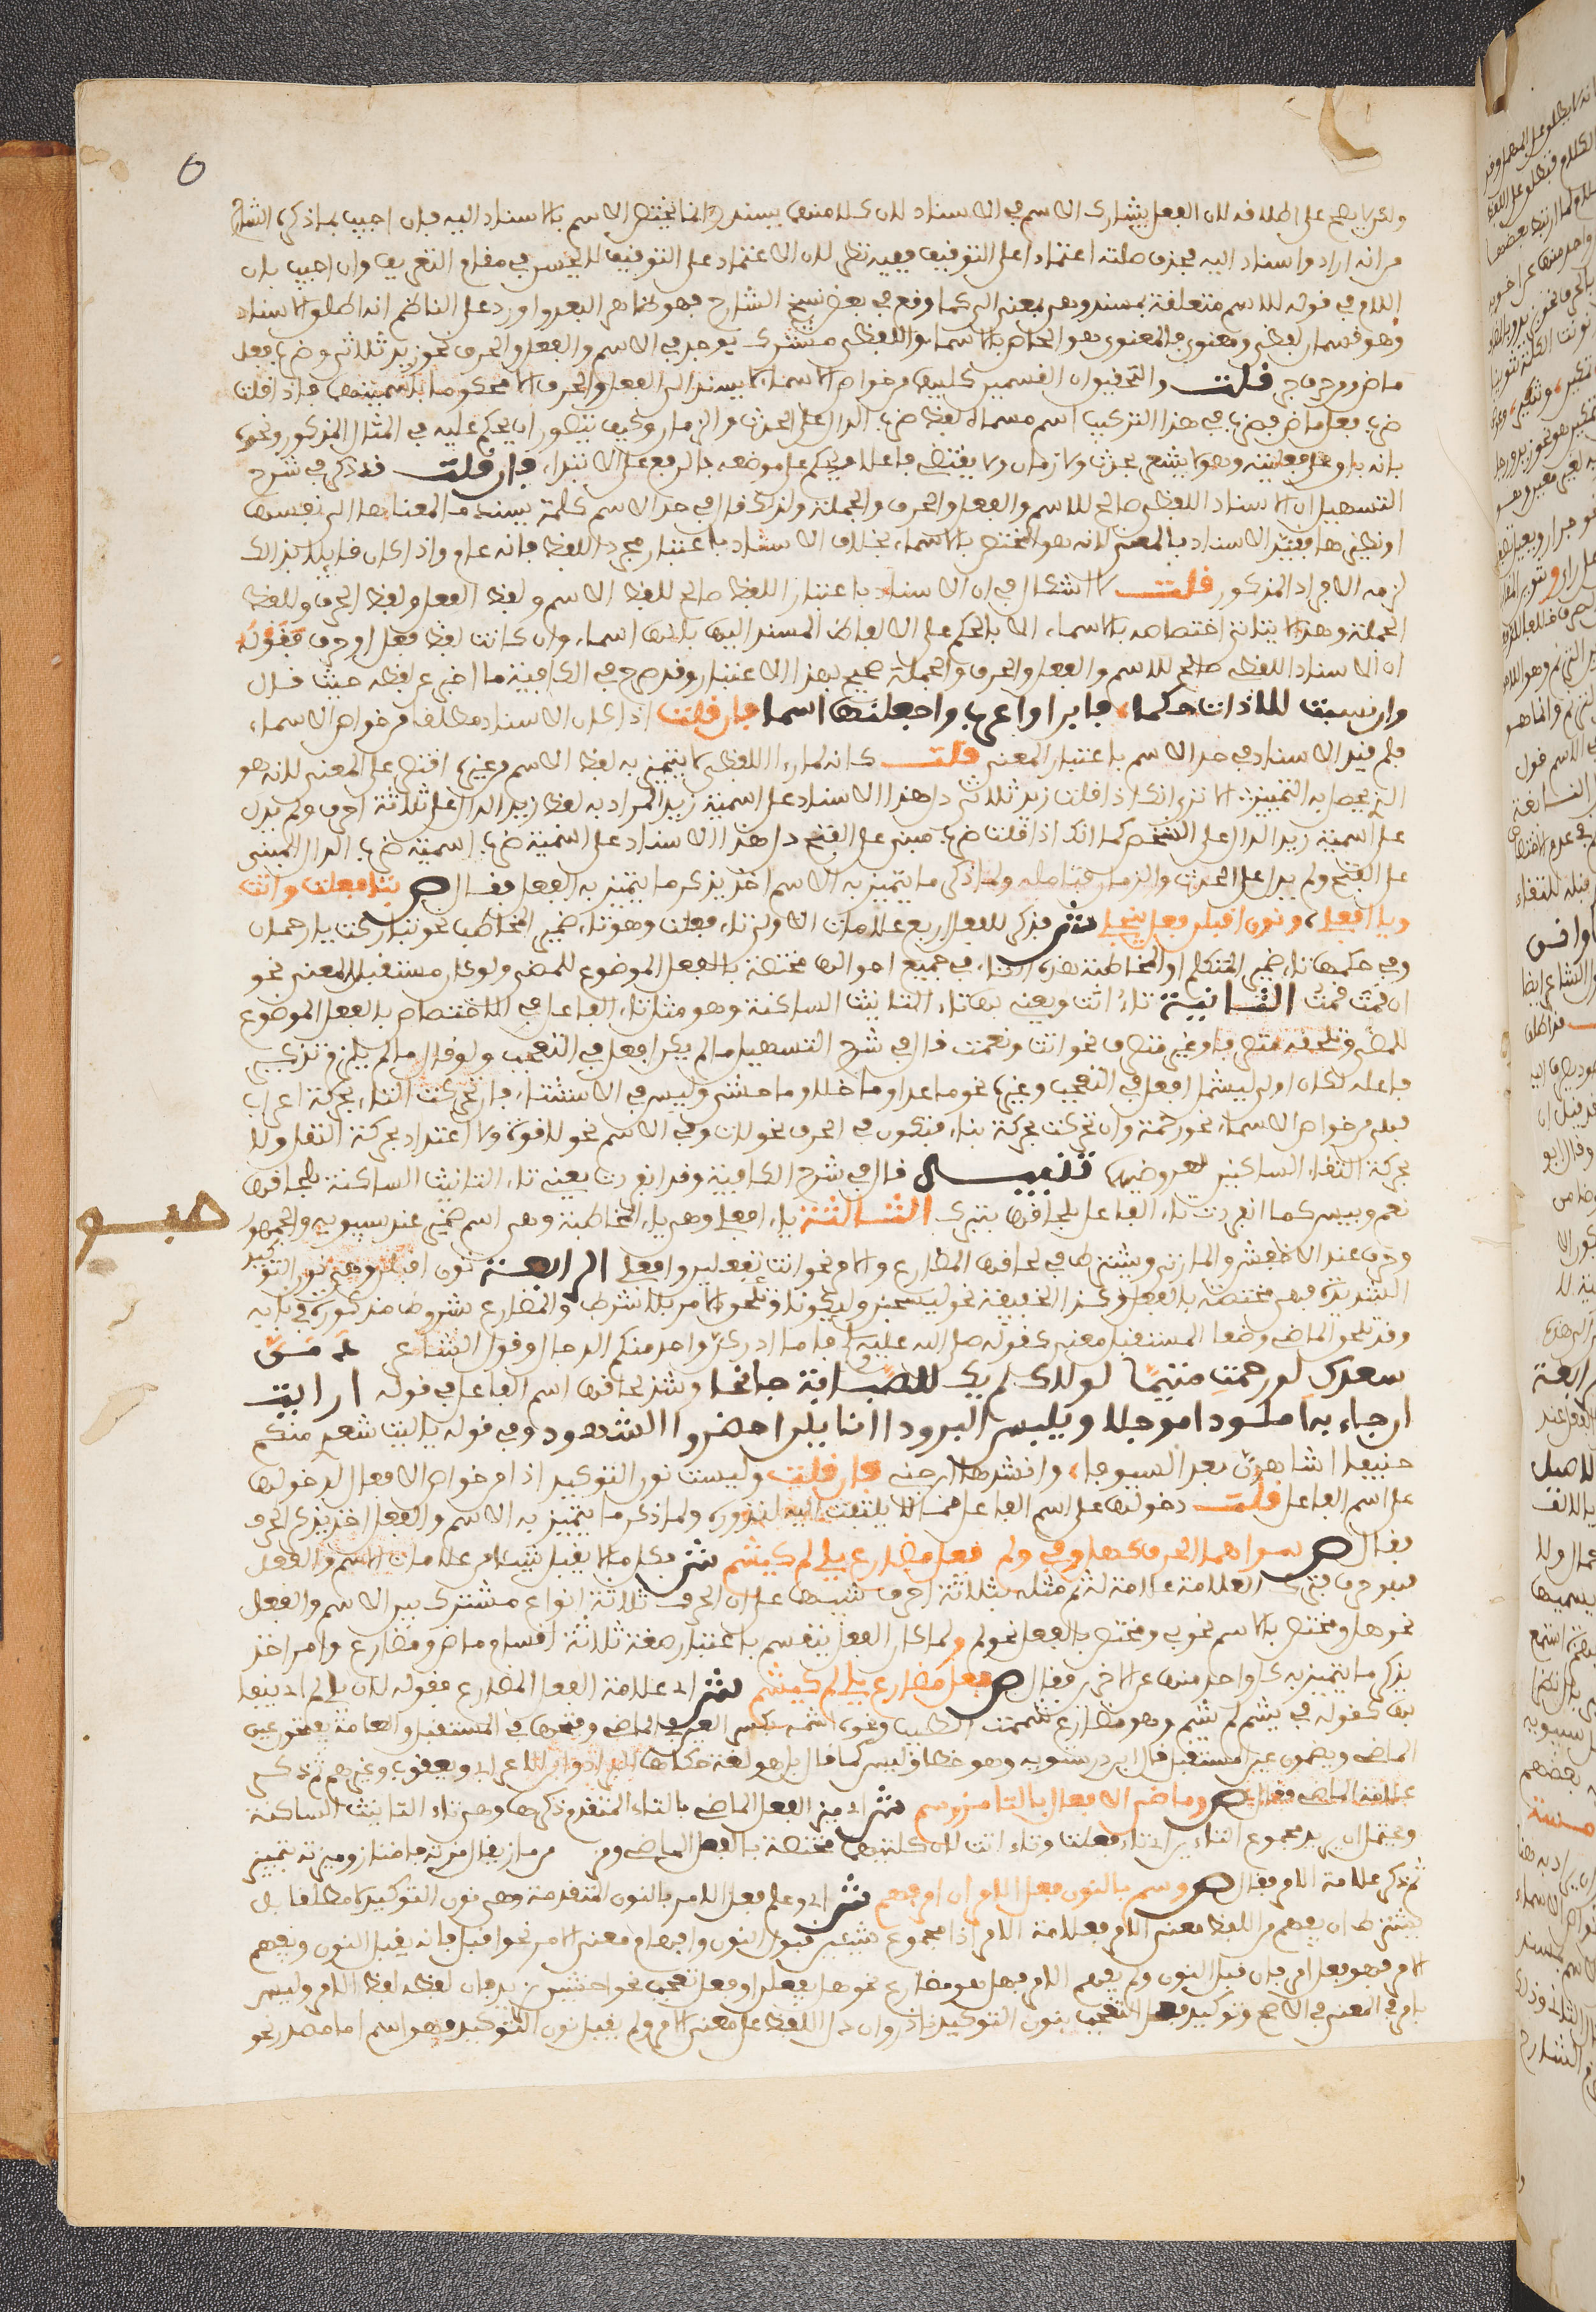 ولكن لا يصح على اطلاقه لان الفعل يشارك الاسم في الاسناد لان كلا منهما يسند وانما يختص الاسم بالاسناد اليه فان اجيب بما ذكره الشارح
من انه اراد واسناد اليه فحذف صلته اعتمادا على التوقيف ففيه نظر لان الاعتماد على التوقيف لا يحسن في مقام التعريف وان اجيب بان
اللام في قوله للاسم متعلقة بمسند وهي بمعنى الى كما وقع في بعض نسخ الشارح فهو ظاهر البعد واورد على الناظم انه اطلق الاسناد
وهو قسمان لفظي ومعنوي فالمعنوي هو الخاص بالاسماء واللفظي مشترك يوجد في الاسم والفعل والحرف نحو زيد ثلاثي وضرب فعل
ماض ومن حرف جر قلت والتحقيق ان القسمين كليهما من خواص الاسماء لا يسند الى الفعل والحرف الا محكوما باسميتهما فاذا قلت
ضرب فعل ماض فضرب في هذا التركيب اسم مسماه لفظ ضرب الدال على الحدث والزمان وكيف يتصور ان يحكم عليه في المثال المذكور ونحوه
بانه باق على فعليته وهو لا يشعر بحدث ولا زمان ولا يقتضي فاعلا ويحكم على موضعه بالرفع على الابتداء فان قلت قد ذكر في شرح
التسهيل ان الاسناد اللفظي صالح للاسم والفعل والحرف والجملة ولذلك قال في حد الاسم كلمة يسند ما لمعناها الى نفسها
او نظيرها فقيد الاسناد بالمعنى لانه هو المختص بالاسماء بخلاف الاسناد باعتبار مجرد اللفظ فانه عام واذا كان قايلا بذلك
لزمه الايراد المذكور قلت لا اشكال في ان الاسناد باعتبار اللفظ صالح للفظ الاسم ولفظ الفعل ولفظ الحرف وللفظ
الجملة وهذا لا ينافي اختصاصه بالاسماء الا بالحكم على الالفاظ المسند اليها بانها اسماء وان كانت لفظ فعل او حرف فقوله
ان الاسناد اللفظي صالح للاسم والفعل والحرف والجملة صحيح بهذا الاعتبار وقد صرح في الكافية ما اخبر عن لفظه حيث قال
وان نسبت لاداة حكما فابن او اعرب واجعلنها اسما فان قلت اذا كان الاسناد مطلقا من خواص الاسماء
فلم قيد الاسناد في حد الاسم باعتبار المعنى قلت كانه لما راى اللفظي لا يتميز به لفظ الاسم من غيره اقتصر على المعنى لانه هو
الذي يحصل به التمييز الا ترى انك اذا قلت زيد ثلاثي دل هذا الاسناد على اسمية زيد المراد به لفظ زيد الدال على ثلاثة احرف ولم يدل
على اسمية زيد الدال على الشخص كما انك اذا قلت ضرب مبني على الفتح دل هذا الاسناد على اسمية ضرب اسمية ضرب الدال المبني
على الفتح ولم يدل على الحدث والزمان فتامله ولما ذكر ما يتميز به الاسم اخذ يذكر ما يتميز به الفعل فقال ص بتا فعلت واتت
ويا افعلي ونون اقبلن فعل ينجلي ش فذكر للفعل اربع علامات الاولى تاء فعلت وهو تاء ضمير المخاطب نحو تباركت يا رحمان
وفي حكمها تاء ضمير المتكلم او المخاطبة فهذه التاء في جميع احوالها مختصة بالفعل الموضوع للمضي ولو كان مستقبل المعنى نحو
ان قمت قمت الثانية تاء اتت ويعني بها تاء التانيث الساكنة وهو مثل تاء الفاعل في الاختصاص بالفعل الموضوع
للمضي وتلحقه متصرفا وغير متصرف نحو اتت ونعمت قال في شرح التسهيل ما لم يكن افعل في التعجب ولو قال ما لم يلزم تذكير
فاعله لكان اولى ليشمل افعل في التعجب وغيره نحو ما عدا وما خلا وما حاشى وليس في الاستثناء فان تحركت التاء بحركة اعراب
فهي من خواص الاسماء نحو رحمة وان تحركت بحركة بناء فتكون في الحرف نحو لات وفي الاسم نحو لا قوة ولا اعتداد بحركة النقل ولا
بحركة التقاء الساكنين لعروضهما تنبيه قال في شرح الكافية وقد انفردت يعني تاء التانيث الساكنة بلحاقها
نعم وبيس كما انفردت تاء الفاعل بلحاقها بتبارك الثالثة ياء افعلي وهي ياء المخاطبة وهي اسم ضمير عند سيبويه والجمهور
وحرف عند الاخفش والمازني ويشتركان في لحاقها المضارع والامر نحو انت تفعلين وافعلي الرابعة نون اقبلن وهي نون التوكيد
الشديدة فهي مختصة بالفعل وكذا الخفيفة نحو ليسجنن وليكونا وتلحق الامر بلا شرط والمضارع بشروط مذكورة في بابه
وقد تلحق الماضي وضعا المستقبل معنى كقوله صلى الله عليه وسلم فاما ادركن واحد منكم الدجال وقول الشاعر دامن
سعدك لو رحمت متيما لولاك لم يك للصبابة جانحا وشذ لحاقها اسم الفاعل في قوله ارايت
ان جاءت به املودا مرجلا ويلبس البرودا اقايلن احضروا الشهود وفي قوله يا ليت شعري منكم
حنيفا اشاهرن بعدنا السيوفا وانشدهما ابن جني فان قلت وليست نون التوكيد اذا من خواص الافعال لدخولها
على اسم الفاعل قلت دخولها على اسم الفاعل مما لا يلتفت اليه لندوره ولما ذكر ما يتميز به الاسم والفعل اخذ يذكر الحرف
فقال ص سواهما الحرف كهل وفي ولم فعل مضارع يلي لم كيشم ش فكل ما لا يقبل شيئا من علامات الاسم والفعل
فهو حرف فترك العلامة علامة له ثم مثله بثلاثة احرف تنبيها على ان الحرف ثلاثة انواع مشترك بين الاسم والفعل
نحو هل ومختص بالاسم نحو في ومختص بالفعل نحو لم ولما كان الفعل ينقسم باعتبار صيغه ثلاثة اقسام ماض ومضارع وامر اخذ
يذكر ما يتميز به كل واحد منها عن الاخر فقال ص فعل مضارع يلي لم كيشم ش اي علامة الفعل المضارع قبوله لان يلي لم اي ينفى
بها كقوله في يشم لم يشم وهو مضارع شممت الطيب ونحوه اشمه بكسر العين في الماضي وفتحها في المستقبل والعامة يفتحون عين
الماضي ويضمون عين المستقبل قال ابن درستويه وهو خطا وليس كما قال بل هو لغة حكاها الفراء وابن الاعرابي ويعقوب وغيرهم ثم ذكر
علامة الماضي فقال ص وماضي الافعال بالتا مز وسم ش اي ميز الفعل الماضي بالتاء المتقدم ذكرها وهي تاء التانيث الساكنة
ويحتمل ان يريد مجموع التاءين اي تاء فعلت وتاء اتت لان كلتيهما مختصة بالفعل الماضي ومز من ماز يقال مزته فامتاز وميزته فتميز
ثم ذكر علامة الامر فقال ص وسم بالنون فعل الامر ان امر فهم ش اي وعلم فعل الامر بالنون المتقدمة وهي نون التوكيد لا مطلقا بل
بشرط ان يفهم من اللفظ معنى الامر فعلامة الامر اذا مجموع شيئين قبول النون وافهام معنى الامر نحو اقبل فانه يقبل النون ويفهم
الامر فهو فعل امر فان قبل النون ولم يفهم الامر فهل هو مضارع نحو هل يفعلن او فعل تعجب نحو احسن بزيد فان لفظه لفظ الامر وليس
بامر في المعنى في الاصح وتوكيد فعل التعجب بنون التوكيد نادر وان دل اللفظ على معنى الامر ولم يقبل نون التوكيد فهو اسم اما مصدر نحو